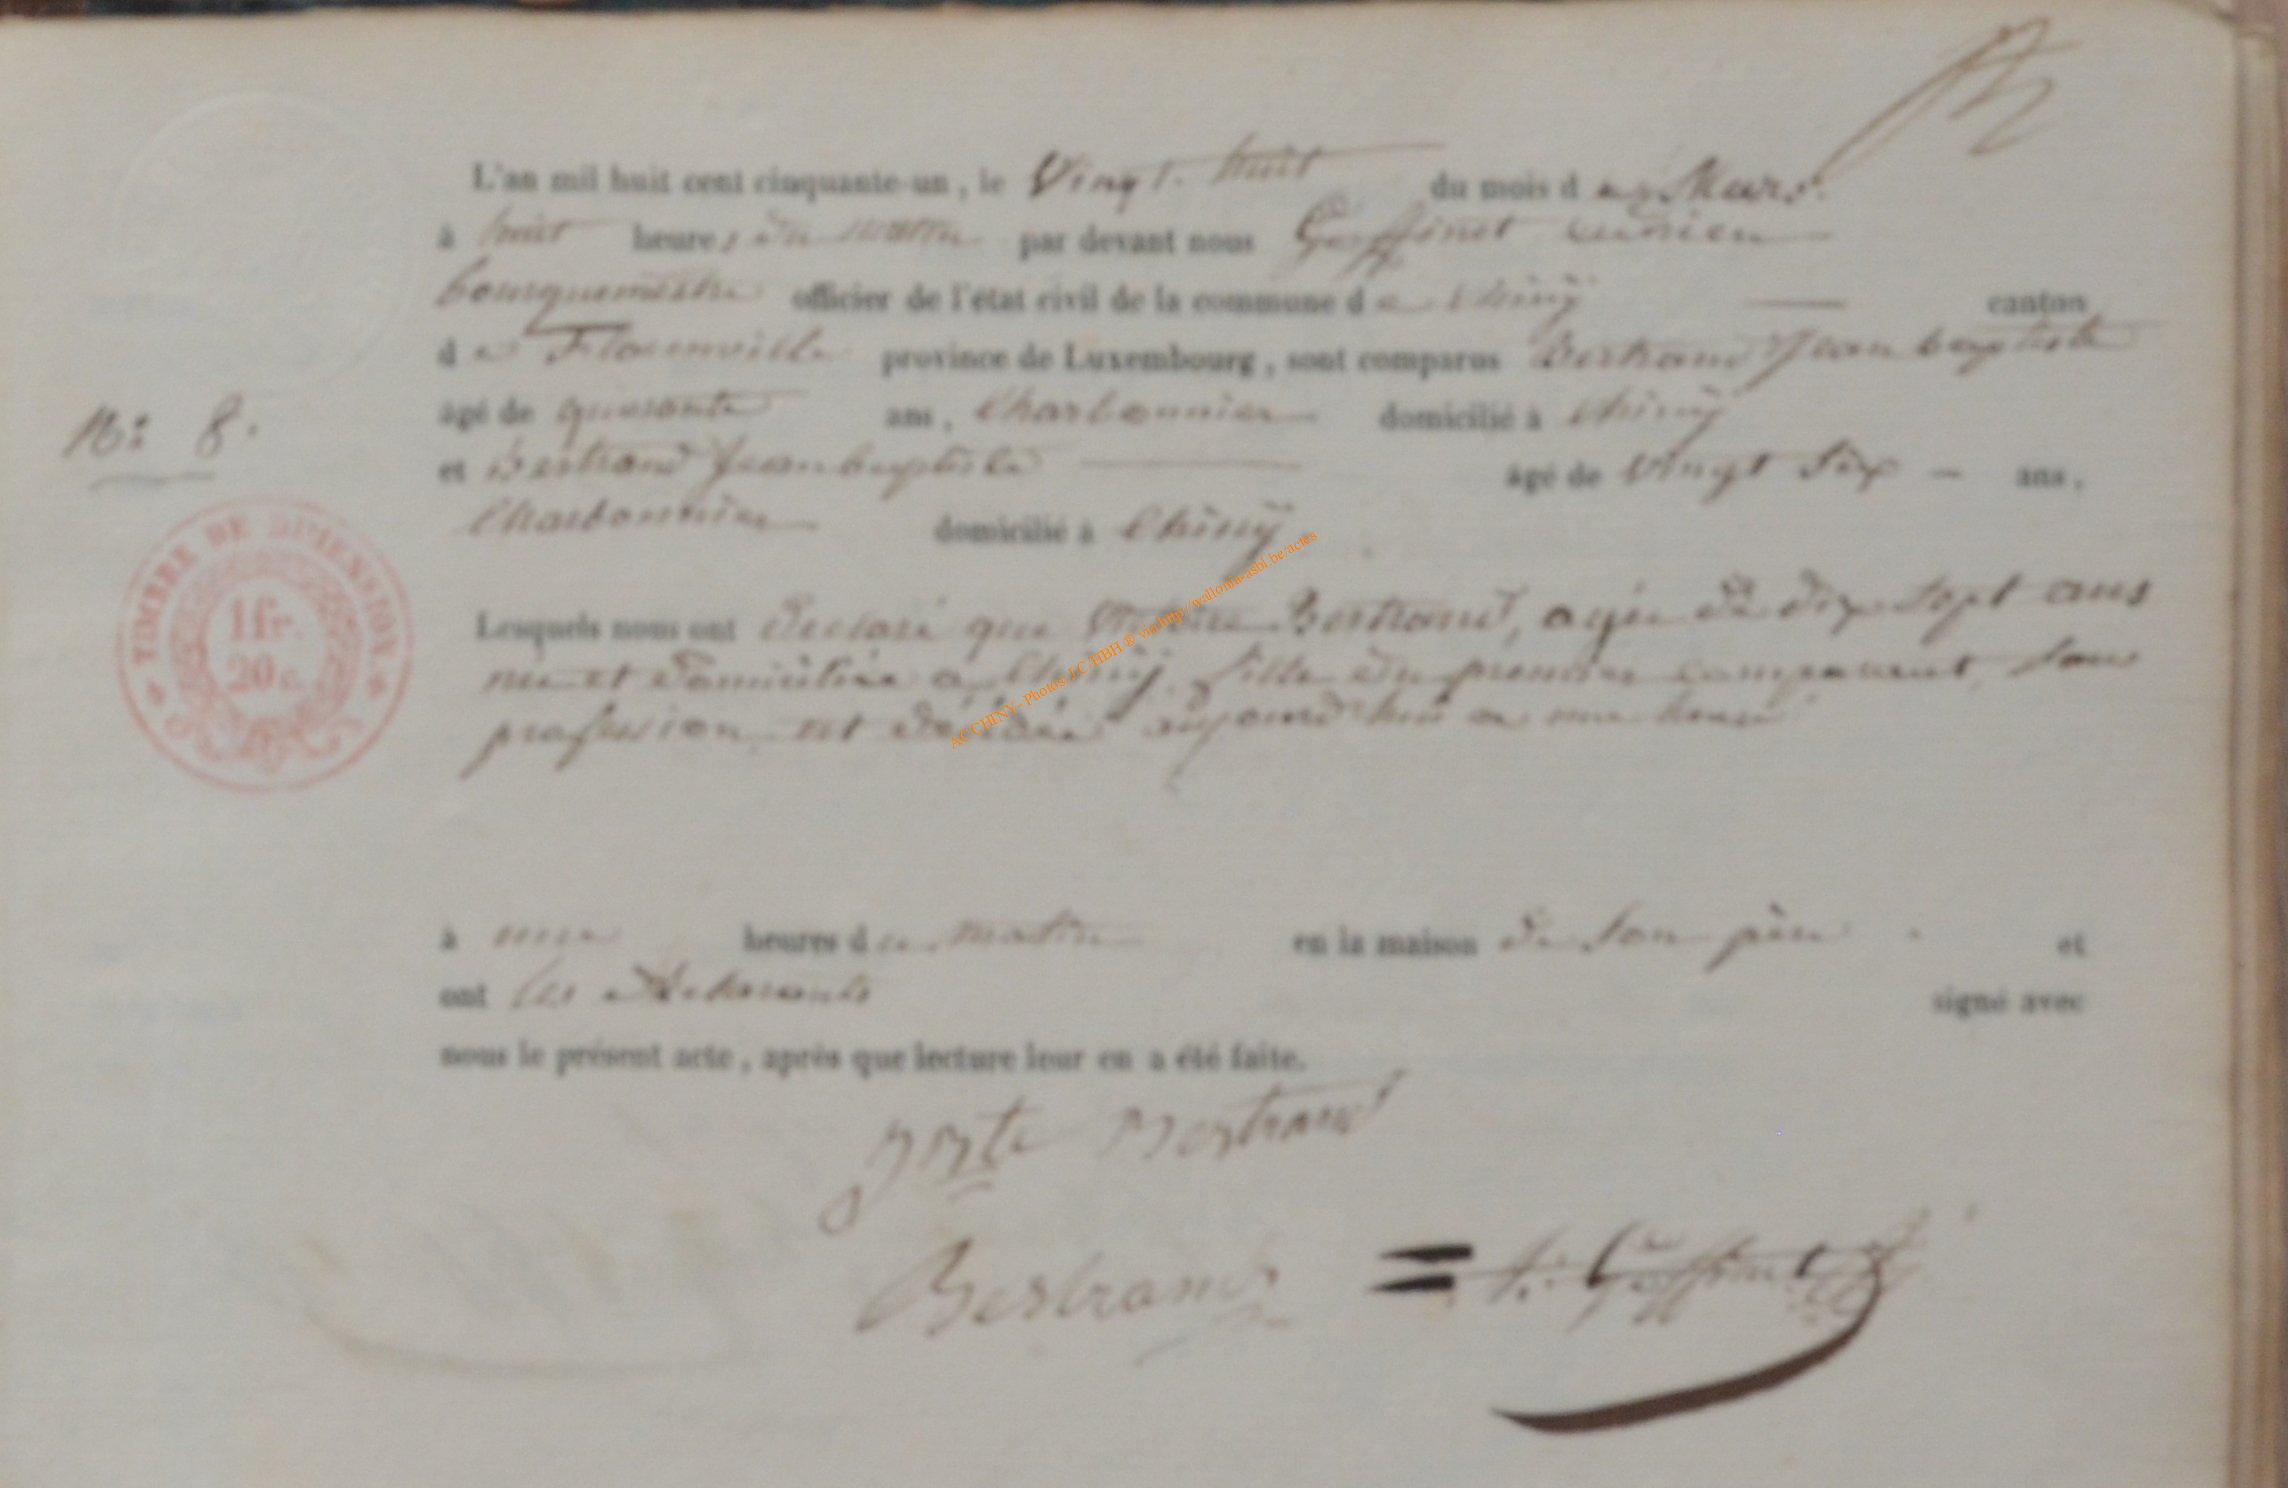 L'an mil huit cent cinquante-un, le Vingt-huit du mois de Mars
à huit heures du matin par devant nous Geoffinet Adrien
bourguemestre officier de l'état civil de la commune de Chinÿ canton
de Florenville province de Luxembourg, sont comparus Bertrand Jean baptiste
âgé de quarante ans, Charbonnier domicilié à Chinÿ
N° 8.
et Bertrand Jean baptiste âgé de Vingt Six ans,
Charbonnier domicilié à Chinÿ
TIMBRE DE DIMENSION
1 fr.
20 c.
Lesquels nous ont declaré que Bertrand, agée de dix sept ans
née et domiciliée à Chinÿ, fille du premier comparant, sans
profession, est décédée aujourd'hui a une heure
AC CHINY - Photos LC HBH ® via http://wallonia-asbl.be/actes
à une heures du matin en la maison de son père et
ont les déclarants signé avec
nous le présent acte, après que lecture leur en a été faite.
Bertrand
Bertrand